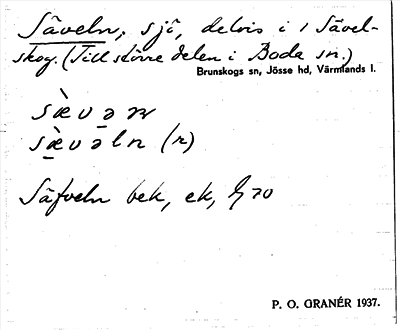 Säveln, sjö, delvis i 1 Sävel-
skog. (Till större delen i Boda sn.)
Brunskogs sn, Jösse hd, Värmlands l.
sæ̀vəɴ
sæ̀vəln (r)
Säfveln bek, ek, 70
P. O. GRANÉR 1937.